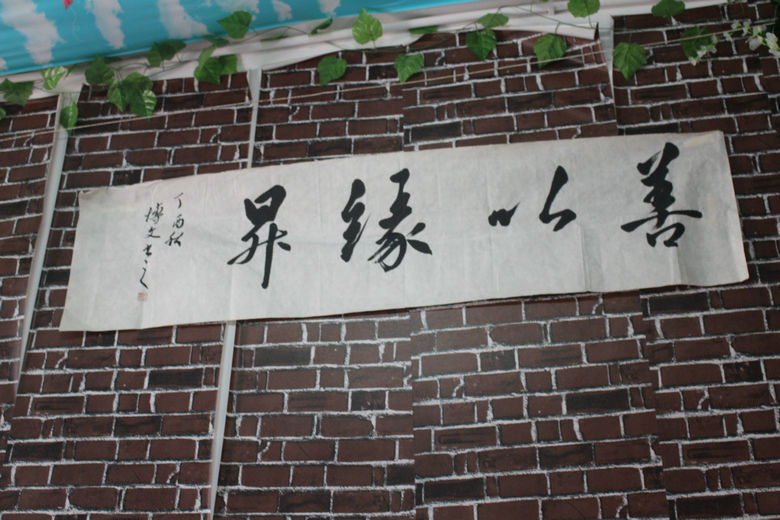 善以缘昇
丁酉秋
博文书之